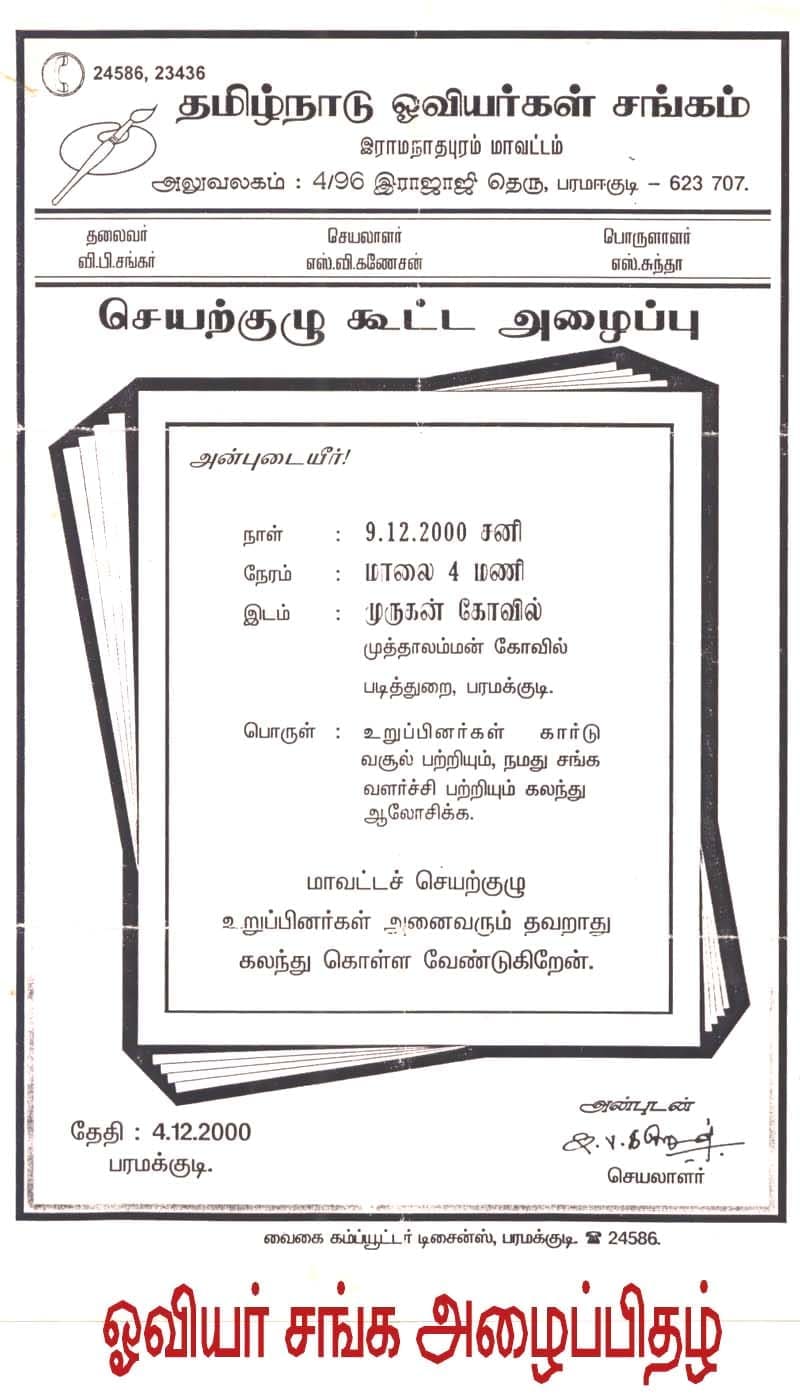 24586, 23436
தமிழ்நாடு ஓவியர்கள் சங்கம்
இராமநாதபுரம் மாவட்டம்
அலுவலகம் : 4/96 இராஜாஜி தெரு, பரமஈகுடி – 623 707.
தலைவர் செயலாளர் பொருளாளர்
வி.பி.சங்கர் எஸ்.வி.கணேசன் எஸ்.சுந்தா
செயற்குழு கூட்ட அழைப்பு
அன்புடையீர்!
நாள் : 9.12.2000 சனி
நேரம் : மாலை 4 மணி
இடம் : முருகன் கோவில்
முத்தாலம்மன் கோவில்
படித்துறை, பரமக்குடி.
பொருள் : உறுப்பினர்கள் கார்டு
வசூல் பற்றியும், நமது சங்க
வளர்ச்சி பற்றியும் கலந்து
ஆலோசிக்க.
மாவட்டச் செயற்குழு
உறுப்பினர்கள் அனைவரும் தவறாது
கலந்து கொள்ள வேண்டுகிறேன்.
அன்புடன்
தேதி : 4.12.2000
பரமக்குடி.
செயலாளர்
வைகை கம்ப்யூட்டர் டிசைன்ஸ், பரமக்குடி. ☎ 24586.
ஓவியர் சங்க அழைப்பிதழ்